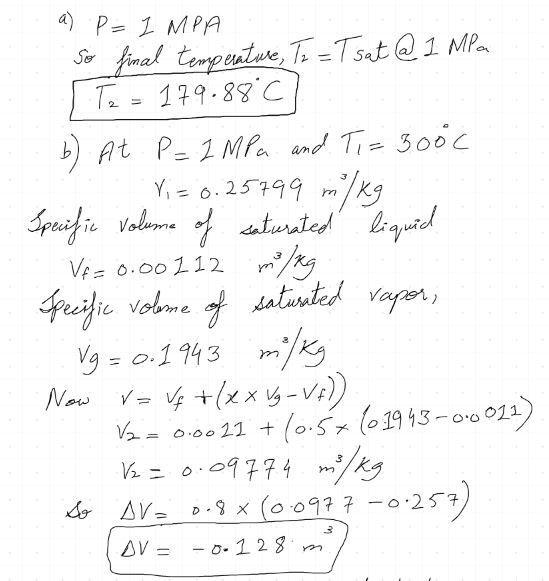 a) P = 1 MPA
So final temperature, T₂ = Tsat @ 1 MPa
T₂ = 179.88°C
b) At P = 1 MPa and T₁ = 300°C
V₁ = 0.25799 m³/kg
Specific volume of saturated liquid
Vf = 0.00112 m³/kg
Specific volume of saturated vapor,
Vg = 0.1943 m³/kg
Now V = Vf + (x × Vg - Vf))
V₂ = 0.0011 + (0.5 × (01943 - 0.0011)
V₂ = 0.09774 m³/kg
So ΔV = 0.8 × (0.0977 - 0.257)
ΔV = -0.128 m³